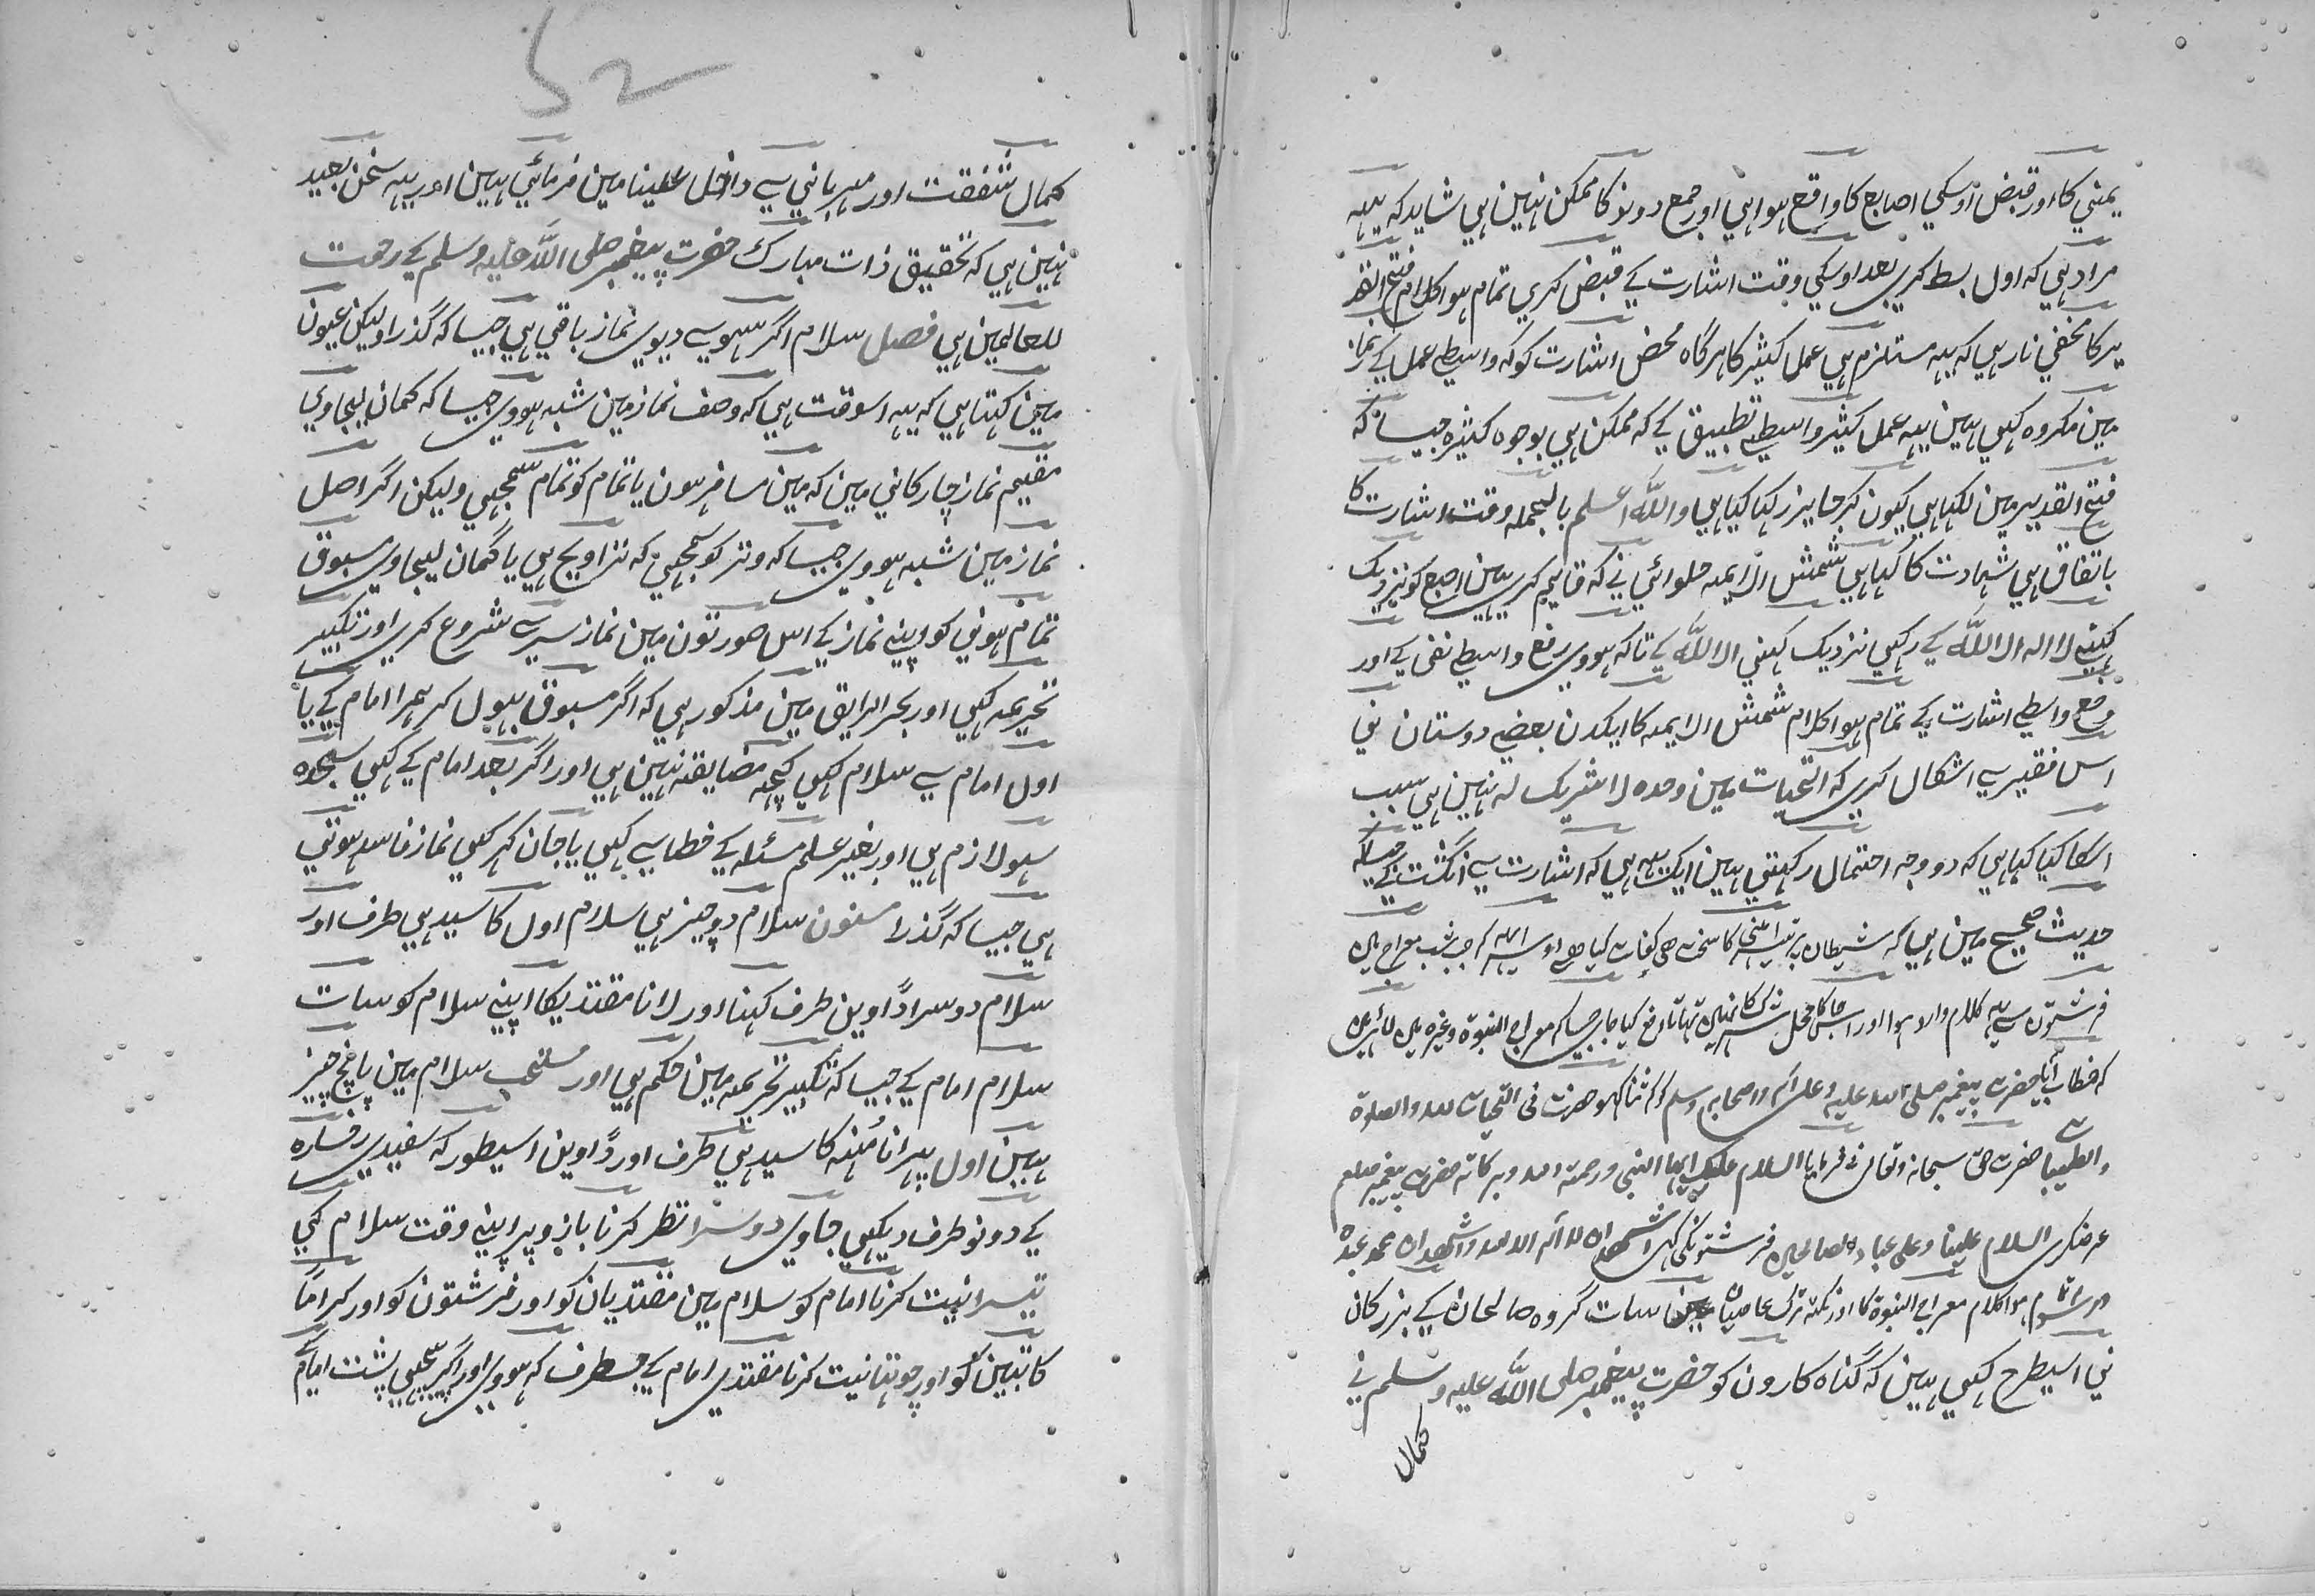 یمنی کا اور قبض اوسکی اصابع کا واقع ہوا ہی اور جمع دونو کا ممکن نہین ہی شاید کہ یہہ
مراد ہی کہ اول بسط کری بعد اوسکی وقت اشارت کے قبض کری تمام ہوا کلام فتح القد
یر کا مخفی نار ہی کہ یہہ مستلزم ہی عمل کثیر کا ہرگاہ محض اشارت کو کہ واسطی عمل کے نماز
مین مکروہ کہی ہین یہہ عمل کثیر واسطی تطبیق کے کہ ممکن ہی بوجوہ کثیرہ جیسا کہ
فتح القدیر مین لکہا ہی کیون کر جایز رکہا گیا ہی واللہ اعلم بالجملہ وقت اشارت کا
باتفاق ہی شہادت کا کہا ہی شمش الایمہ حلوائی نے کہ قایم کری ہین اصبع کو نزدیک
کہنی لا الہ الا اللہ کے رکہی نزدیک کہنی الا اللہ کے تاکہ ہووی رفع واسطی نفی کے اور
وضع واسطی اشارت کے تمام ہوا کلام شمش الایمہ کا ایکدن بعضی دوستان نی
اس فقیر سے اشکال کری کہ التحیات مین وحدہ لا شریک لہ نہین ہی سبب
اسکا کیا کہا ہی کہ دو وجہ احتمال رکہتی ہین ایک یہہ ہی کہ اشارت سے انگشت کے جیسا کہ
حدیث صحیح مین ہی کہ شیطان پر
فرشتون سے یہہ کلام وارد ہوا اور
کہ خطاب آیا حضرت پیغمبر صلی اللہ علیہ وعلی آلہ واصحابہ وسلم کو کہ ثنا کہو حضرت نی التحیات للہ والصلوۃ
والطیبات حضرت حق سبحانہ وتعالی نے فرمایا السلام علیک ایہا النبی ورحمۃ اللہ وبرکاتہ حضرت پیغمبر صلعم
عرض کری السلام علینا وعلی عباد الصالحین فرشتونکی کہی اشہد ان لا الہ الا اللہ واشہد ان محمد عبدہ
ورسولہ تمام ہوا کلام معراج النبوۃ کا اور نکتہ ترک عاصیان مین سات گروہ صالحان کے بزرگان
نی اسیطرح کہی ہین کہ گناہ کارون کو حضرت پیغمبر صلی اللہ علیہ وسلم نے
کمال
۵۲
کمال شفقت اور مہربانی سے داخل علینا مین فرمائی ہین اور یہہ سخن بعید
نہین ہی کہ تحقیق ذات مبارک حضرت پیغمبر صلی اللہ علیہ وسلم کے رحمت
للعالمین ہی فصل سلام اگر سہو سے دیوی نماز باقی ہی جیسا کہ گذرا ولیکن عیون
مین کہتا ہی کہ یہہ اسوقت ہی کہ وصف نماز مین شبہ ہووی جیسا کہ گمان لیجاوی
مقیم نماز چار رکاتی مین کہ مین مسافر ہون یا تمام کو تمام سمجہی ولیکن اگر اصل
نماز مین شبہ ہووی جیسا کہ وتر کو سمجہی کہ تراویح ہی یا گمان لیجاوی مسبوق
تمام ہونی کو اپنے نماز کے اس صورتون مین نماز سرسے شروع کری اور تکبیر
تحریمہ کہی اور بحر الرایق مین مذکور ہی کہ اگر مسبوق بہول کر ہمراہ امام کے یا
اول امام سے سلام کہی کچہہ مضایقہ نہین ہی اور اگر بعد امام کے کہی سجدہ
سہو لازم ہی اور بغیر علم مسئلہ کے خطا سے کہی یا جان کر کہی نماز فاسد ہوتی
ہی جیسا کہ گذرا مسنون سلام دو چیز ہی سلام اول کا سیدہی طرف اور
سلام دوسرا ڈاوین طرف کہنا اور لانا مقتدیکا اپنے سلام کو سات
سلام امام کے جیسا کہ تکبیر تحریمہ مین حکم ہی اور مستحب سلام مین پانچ چیز
ہین اول پہرانا مُنہہ کا سیدہی طرف اور ڈاوین اسیطور کہ سفیدی رخسارہ
کے دونو طرف دیکہی جاوی دوسرا نظر کرنا بازو پر اپنے وقت سلام کی
تیسرا نیت کرنا امام کو سلام مین مقتدیان کو اور فرشتون کو اور کراماً
کاتبین کو اور چوتہا نیت کرنا مقتدی امام کے جسطرف کہ ہووی اور اگر پیچہی پشت امام کے